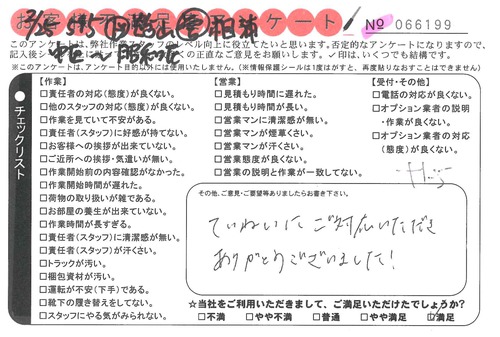 № 066199
このアンケートは、弊社作業スタッフのレベル向上に役立てたいと思います。否定的なアンケートになりますので、
記入後シールを貼っていただき、忌憚なく正直なご意見をお願いします。✓印は、いくつでも結構です。
※このアンケートは、アンケート目的以外には使用いたしません。(※情報保護シールは1度はがすと、再度貼りなおすことはできません)
チェックリスト
【作業】
□責任者の対応(態度)が良くない。
□他のスタッフの対応(態度)が良くない。
□作業を見ていて不安がある。
□責任者(スタッフ)に好感が持てない。
□お客様への挨拶が出来ていない。
□ご近所への挨拶・気遣いが無い。
□作業開始前の内容確認がなかった。
□作業開始時間が遅れた。
□荷物の取り扱いが雑である。
□お部屋の養生が出来ていない。
□作業時間が長すぎる。
□責任者(スタッフ)に清潔感が無い。
□責任者(スタッフ)が汗くさい。
□トラックが汚い。
□梱包資材が汚い。
□運転が不安(下手)である。
□靴下の履き替えをしてない。
□スタッフにやる気がみられない。
【営業】
□見積もり時間に遅れた。
□見積もり時間が長い。
□営業マンに清潔感が無い。
□営業マンが煙草くさい。
□営業マンが汗くさい。
□営業態度が良くない。
□営業の説明と作業が一致してない。
【受付・その他】
□電話の対応が良くない。
□オプション業者の説明
・作業が良くない。
□オプション業者の対応
(態度)が良くない。
その他、ご意見・ご要望等ありましたらお書き下さい。
ていねいにご対応いただき
ありがとうございました!
☆当社をご利用いただきまして、ご満足いただけたでしょうか?
□不満 □やや不満 □普通 □やや満足 ☑満足